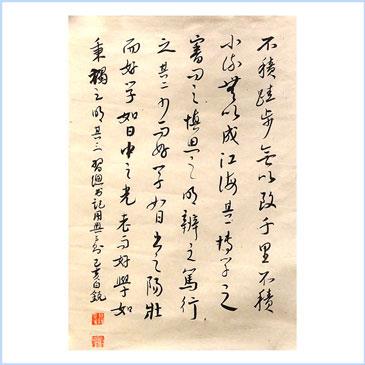 不積跬步無以致千里不積
小流無以成江海其一博学之
審问之慎思之明辨之篤行
之其二少而好学如日出之陽壯
而好学如日中之光老而好學如
秉燭之明其三習书記用典三则己亥白銳